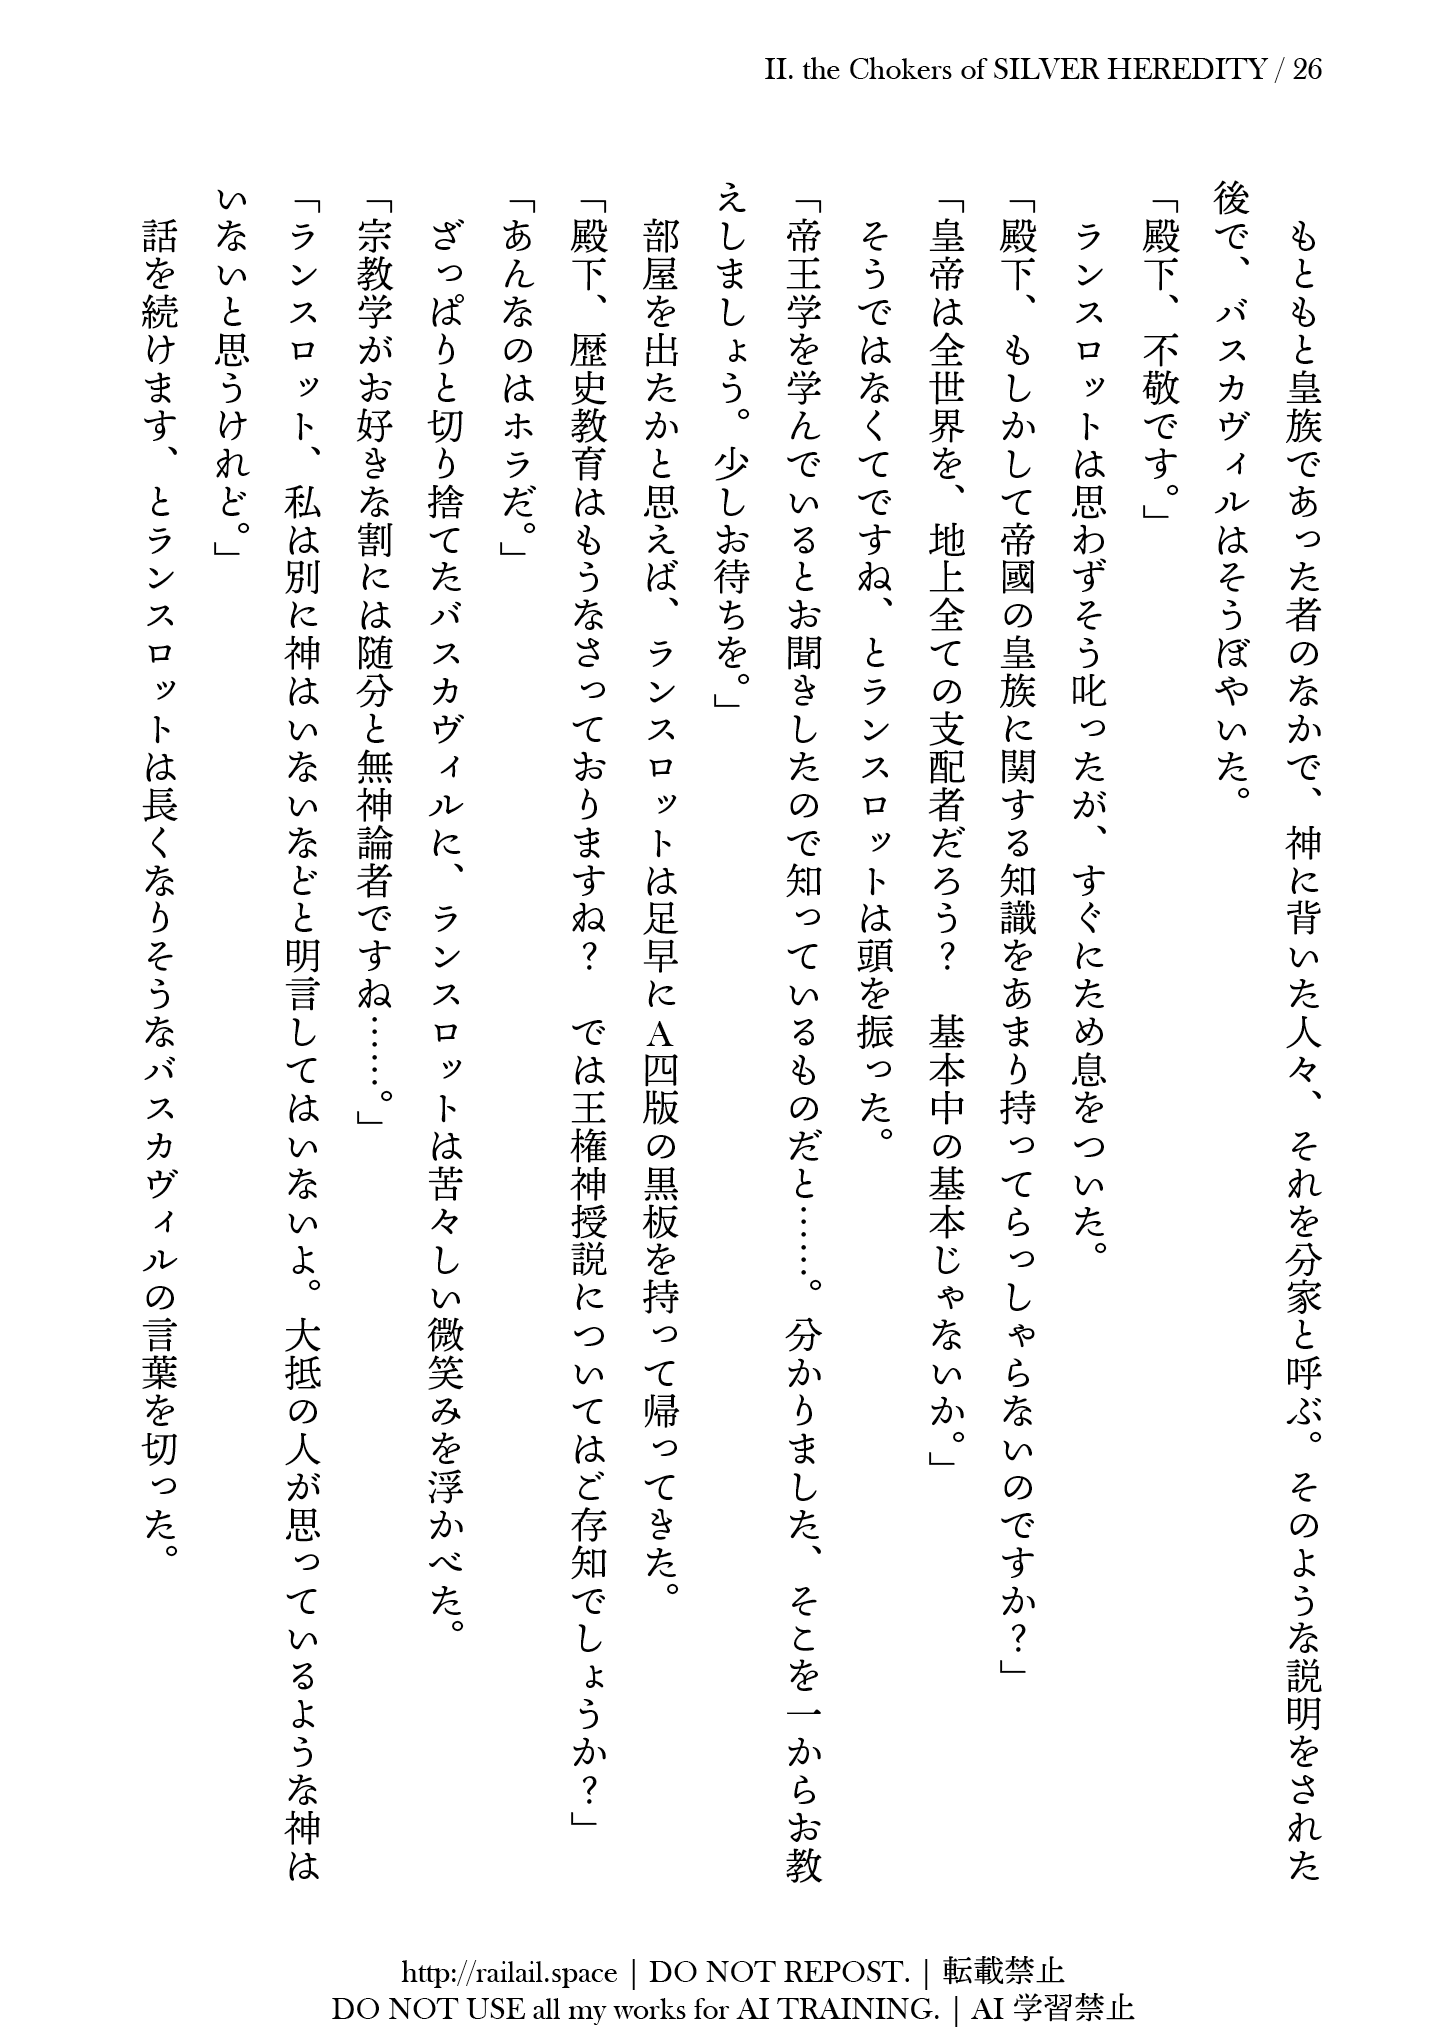 II. the Chokers of SILVER HEREDITY / 26
もともと皇族であった者のなかで、神に背いた人々、それを分家と呼ぶ。そのような説明をされた
後で、バスカヴィルはそうぼやいた。
「殿下、不敬です。」
ランスロットは思わずそう叱ったが、すぐにため息をついた。
「殿下、もしかして帝國の皇族に関する知識をあまり持ってらっしゃらないのですか？」
「皇帝は全世界を、地上全ての支配者だろう？　基本中の基本じゃないか。」
そうではなくてですね、とランスロットは頭を振った。
「帝王学を学んでいるとお聞きしたので知っているものだと……。分かりました、そこを一からお教
えしましょう。少しお待ちを。」
部屋を出たかと思えば、ランスロットは足早にA四版の黒板を持って帰ってきた。
「殿下、歴史教育はもうなさっておりますね？　では王権神授説についてはご存知でしょうか？」
「あんなのはホラだ。」
ざっぱりと切り捨てたバスカヴィルに、ランスロットは苦々しい微笑みを浮かべた。
「宗教学がお好きな割には随分と無神論者ですね……。」
「ランスロット、私は別に神はいないなどと明言してはいないよ。大抵の人が思っているような神は
いないと思うけれど。」
話を続けます、とランスロットは長くなりそうなバスカヴィルの言葉を切った。
http://railail.space | DO NOT REPOST. | 転載禁止
DO NOT USE all my works for AI TRAINING. | AI 学習禁止